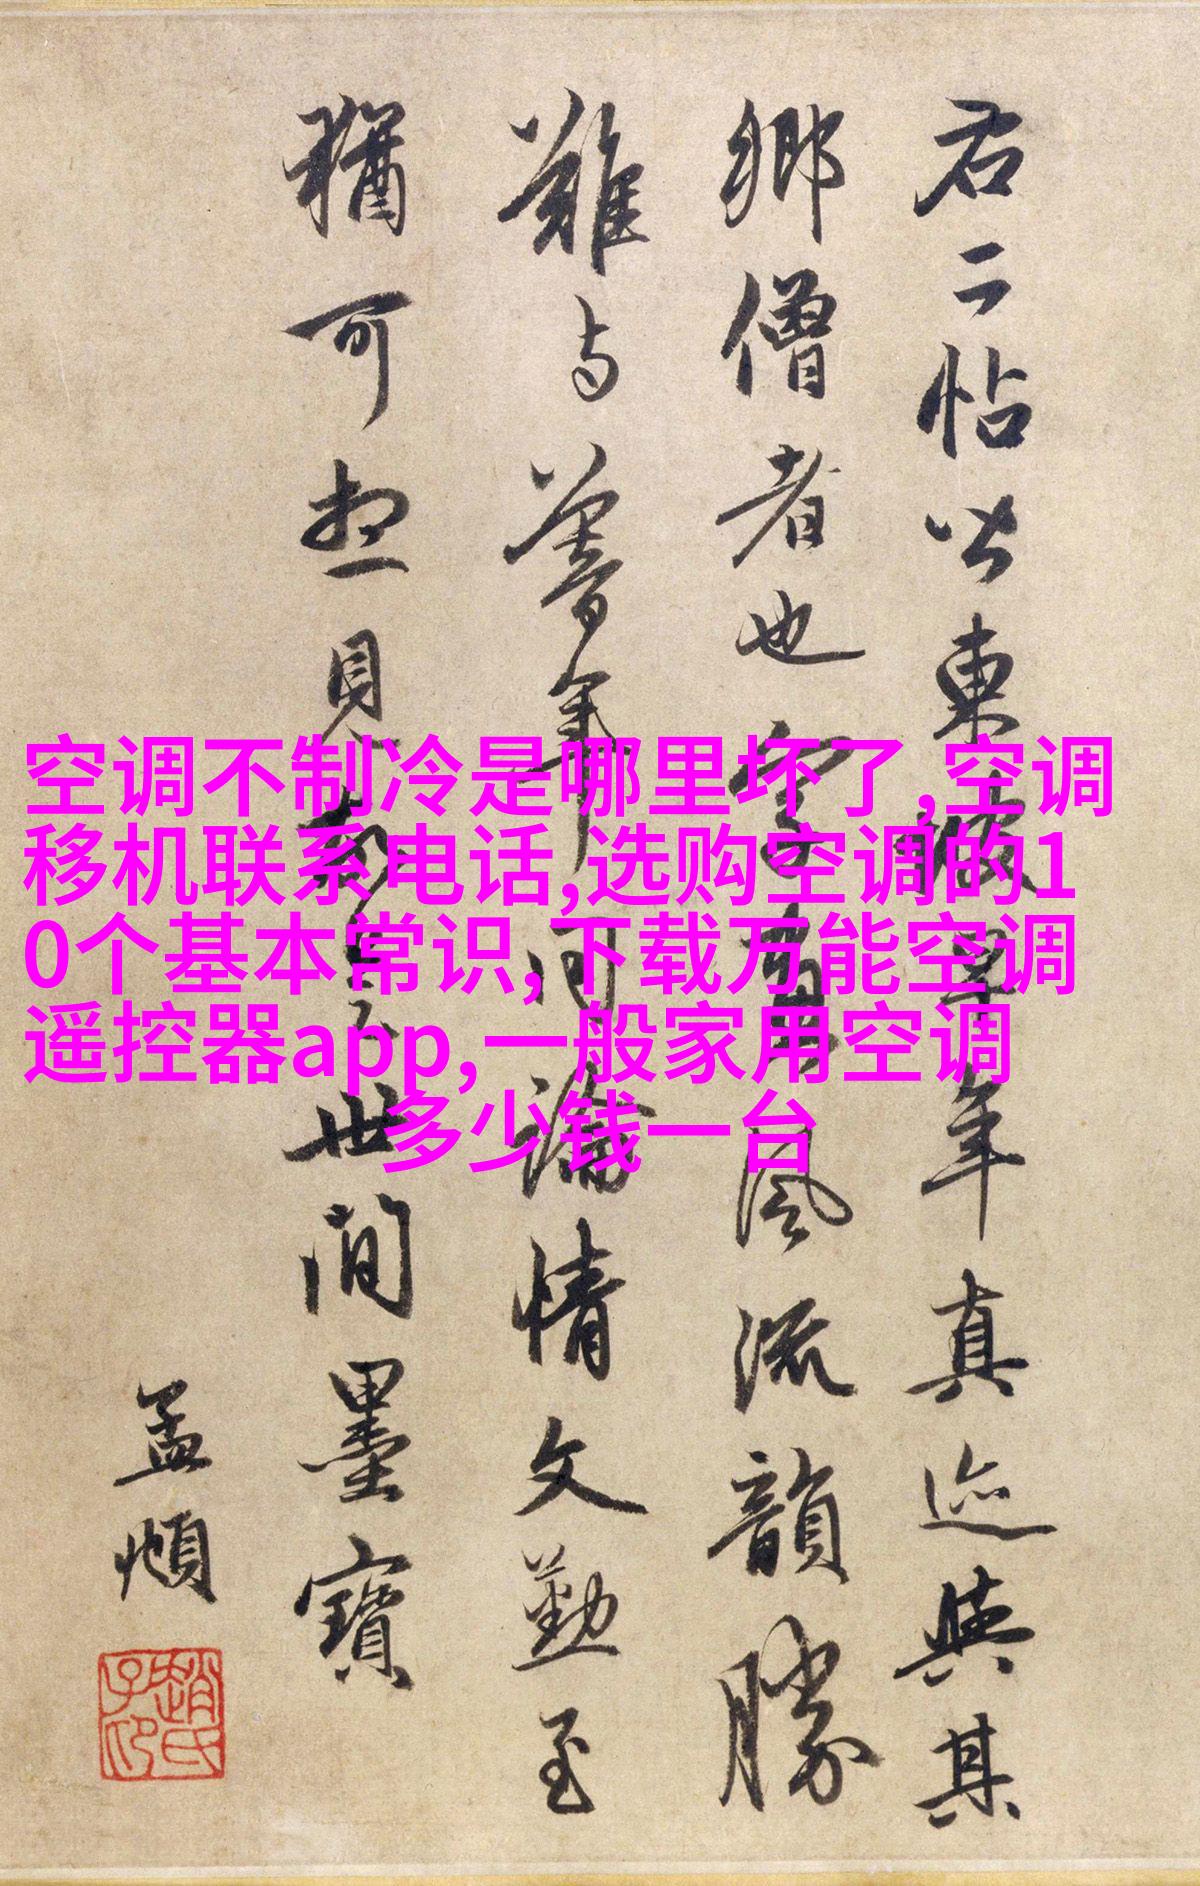 右二帖皆東坡早年真迹與其
鄉僧者也字有風流韻勝
難与暮年同論情文勤至
猶可想見故是世間墨寶
孟頫
趙氏子昂
空调不制冷是哪里坏了,空调
移机联系电话,选购空调的1
0个基本常识,下载万能空调
遥控器app,一般家用空调
多少钱一台